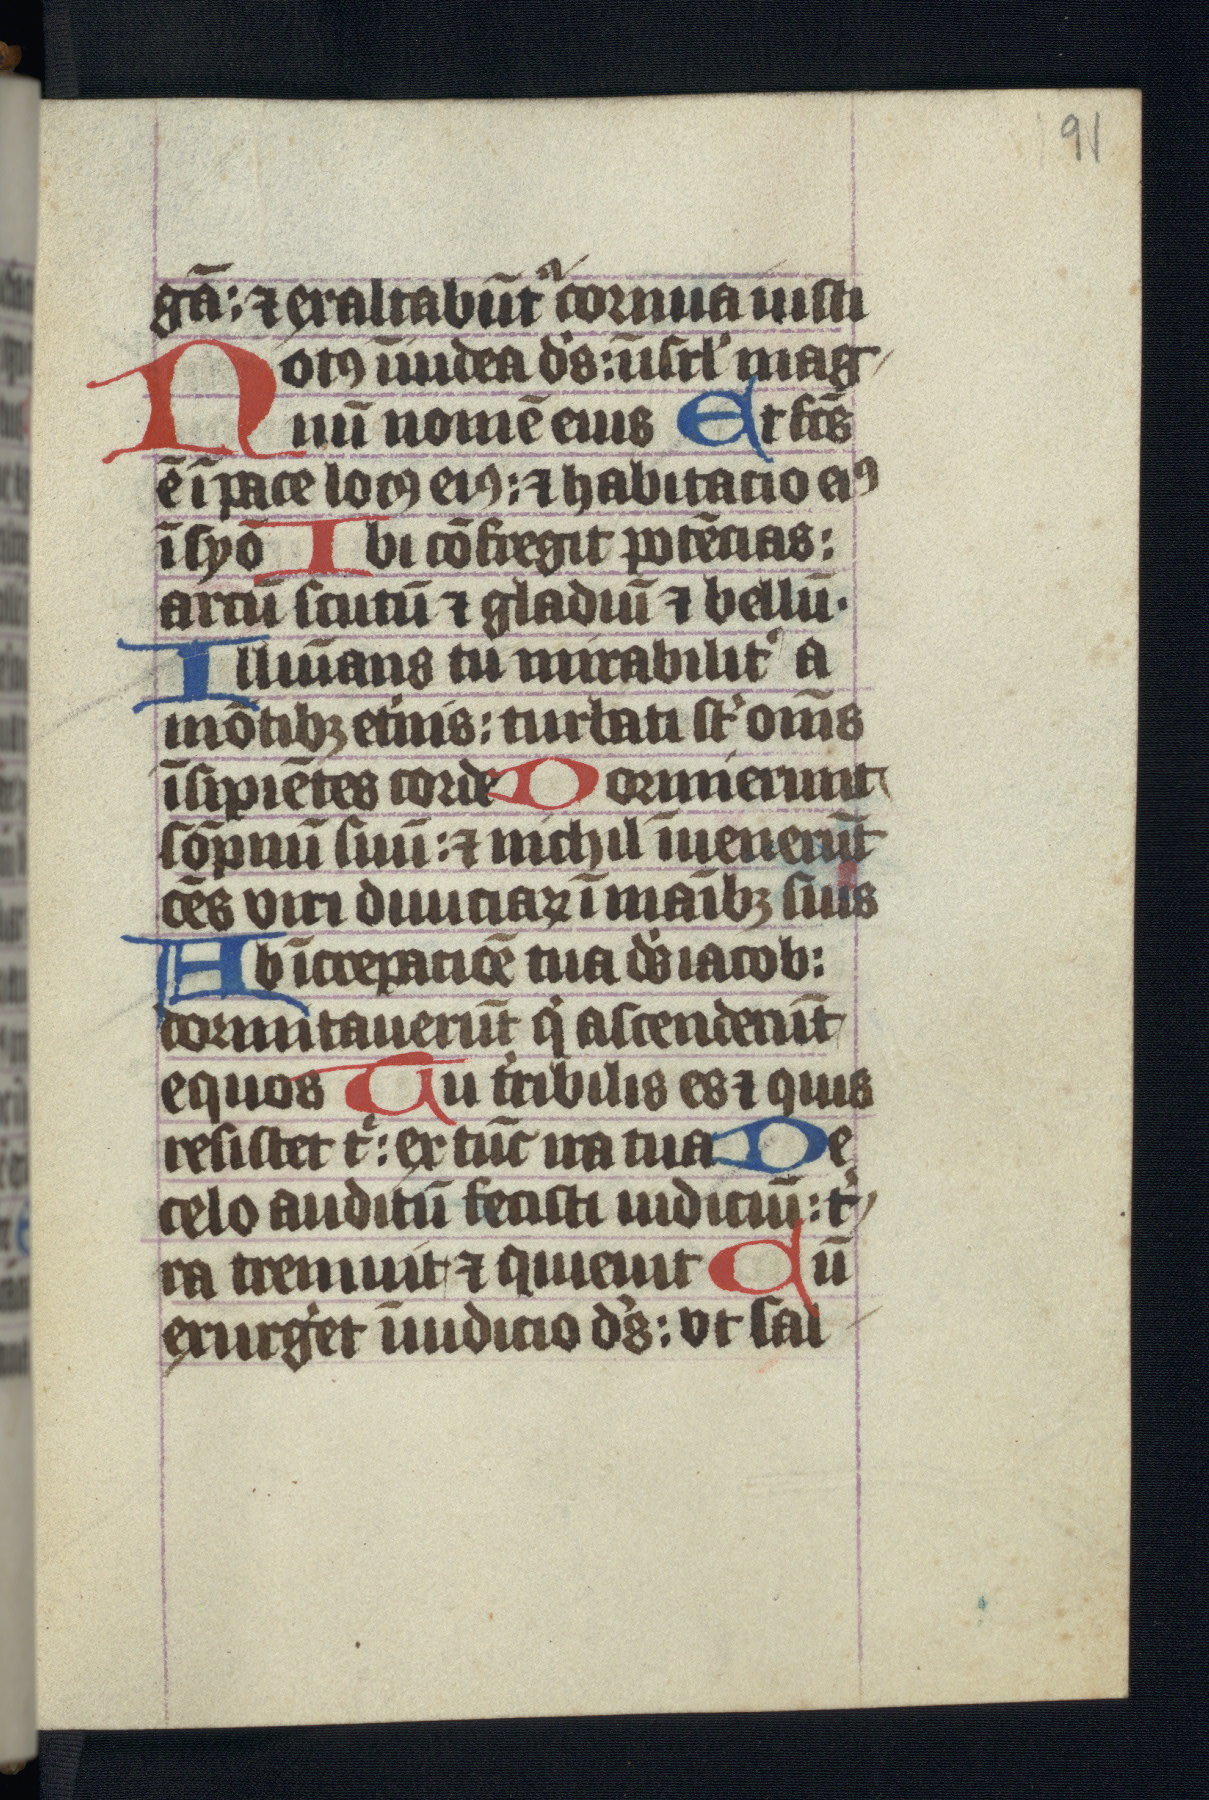 91
gā: ⁊ exaltabūtᷣ cornua iusti
Notꝰ ī iudea dˢ: ī isrl' mag
nū nomē eius Et fcūs
ē ī pace locꝰ eiꝰ: ⁊ habitacio eiꝰ
ī syō Ibi cōfregit potēcias:
arcū scutū ⁊ gladiū ⁊ bellū.
Illuīans tu mirabilit' a
mōtibꝫ et'nis: turbati st' om̄s
īsipiētes corde Dormierunt
sōpnū suū: ⁊ nichil īuenerūt
om̄s viri diuiciaꝝ ī maībꝫ suis
Ab īcrepaciōe tua dˢ iacob:
dormitauerūt q' ascenderūt
equos Tu t'ribilis es ⁊ quis
resistet t': ex tūc ira tua De
celo auditū fecisti iudiciū: t'
ra tremuit ⁊ quieuit Cū
exurg'et ī iudicio dˢ: vt sal